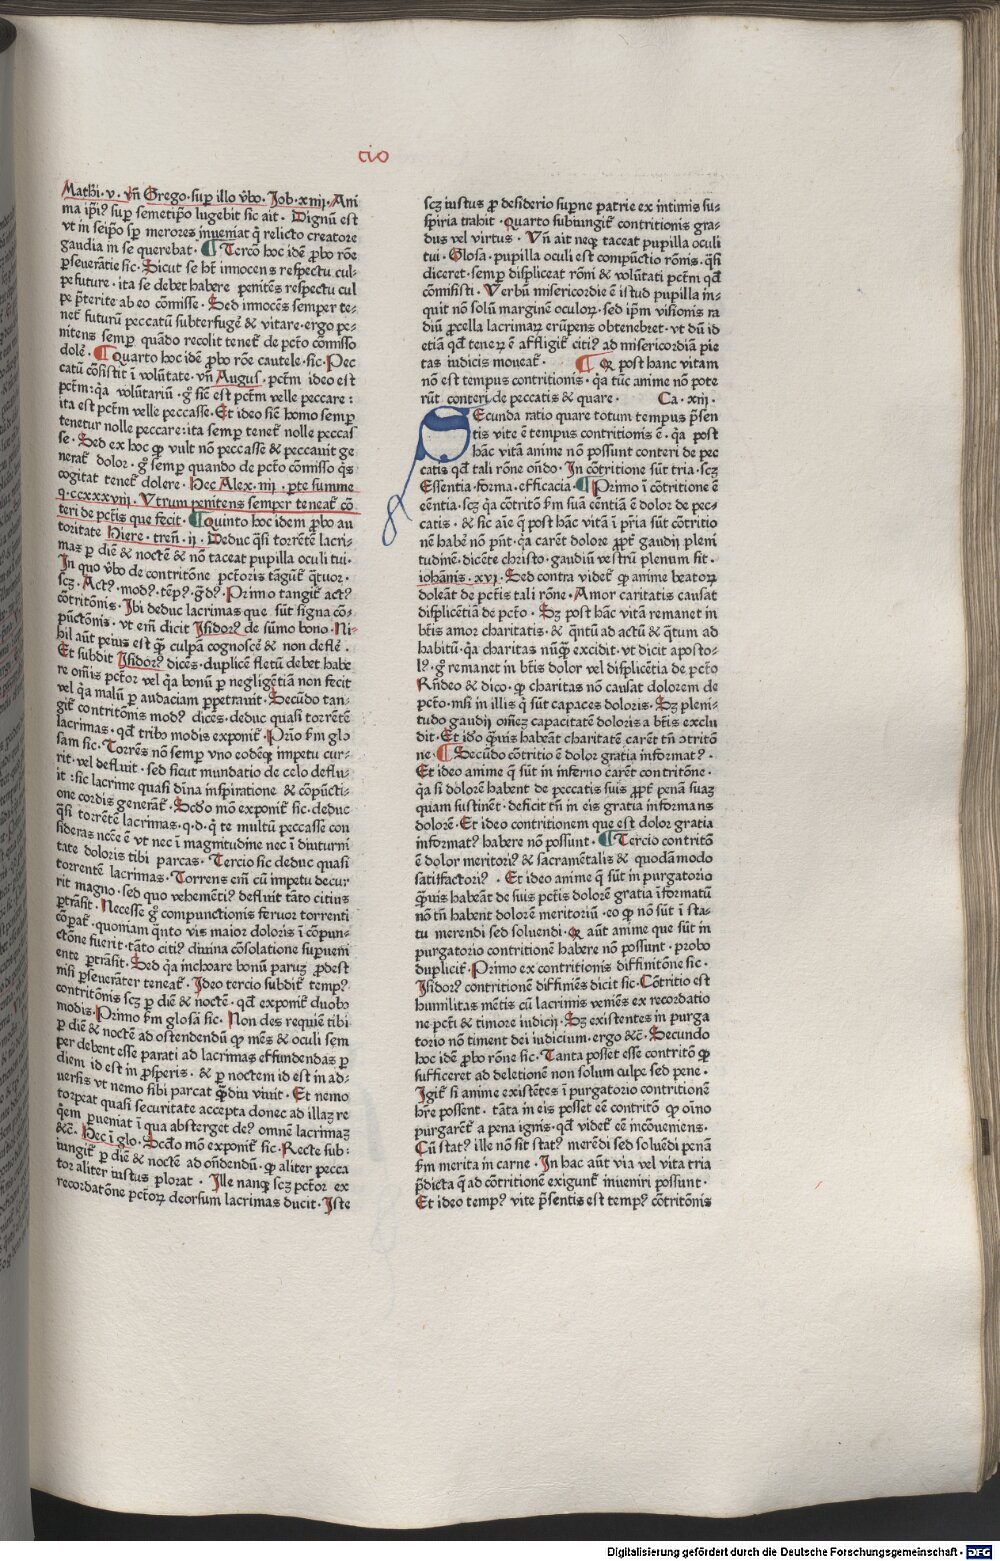 cio
Mathi · v · vñ Grego · suꝑ illo v̄bo · Job · xiiij · Ani
ma ip̄iꝰ suꝑ semetip̄o lugebit sic ait · Dignū est
vt in seip̄o sꝑ merores inueniat q̄ relicto creatore
gaudia in se querebat · ¶ Terco̅ hoc idē ꝓbo rōe
ꝑseuerātie sic · Sicut se hꝫ innocens respectu cul-
pe future · ita se debet habere penitēs respectu cul
pe p̄terite ab eo cōmisse · Sed innocēs semper te-
net̄ futurū peccatū subterfugē & vitare · ergo pe-
nitens semꝑ quādo recolit tenet̄ de pctō comisso
dolē · ¶ Quarto hoc idē ꝓbo rōe cautele · sic · Pec
catū cōsistit ī volūtate · vñ Augus · pctm̄ ideo est
pctm̄: qa volūtariū · gͦ sic est pctm̄ velle peccare :
ita est pctm̄ velle peccasse · Et ideo sic̄ homo semꝑ
tenetur nolle peccare: ita semꝑ tenet̄ nolle peccas
se · Sed ex hoc ꝙ vult nō peccasse & peccauit ge
nerat̄ dolor · gͦ semꝑ quando de pctō cōmisso qͥs
cogitat tenet̄ dolere · Hec Alex · iiij · ꝑte summe
q · ccxxxviij · Vtrum penitens semper teneat̄ cō
teri de pctīs que fecit · ¶ Quinto hoc idem ꝓbo au
toritate Hiere · tren̄ · ij · Deduc q̄si torrētē lacri-
mas ꝑ diē & noctē & nō taceat pupilla oculi tui ·
In quo v̄bo de contritōne pctōris tāgūt̄ q̄tuor ·
scꝫ · Actꝰ · modꝰ · tēpꝰ · gᷓdꝰ · Primo tangit̄ actꝰ
cōtritōnis · Ibi deduc lacrimas que sūt signa cō-
pūctōnis · vt em̄ dicit Isidorꝰ de sūmo bono · Ni-
hil aūt peius est q̄ꝫ culpā cognoscē & non deflē ·
Et subdit Isidorꝰ dicēs · duplicē fletū debet habē
re om̄is pctōr vel qa bonū ꝑ negligētiā non fecit
vel qa malū ꝑ audaciam ꝑpetrauit · Secūdo tan-
git̄ contritōnis modꝰ dicēs · deduc quasi torrētē
lacrimas · qd̄ tribꝰ modis exponit̄ · Prīo ẜm glo
sam sic · Torrēs nō semꝑ vno eodēqꝫ impetu cur-
rit · vel defluit · sed sicut inundatio de celo deflu-
it : sic lacrime quasi dīna inspiratione & cōpūcti-
one cordis generat̄ · Scd̄o mō exponit̄ sic · deduc
q̄si torrētē lacrimas · q · d · q̄ te multū peccasse con
sideras ncē̄e ē vt nec ī magnitudine nec ī diuturni
tate doloris tibi parcas · Tercio sic deduc quasi
torrentē lacrimas · Torrens em̄ cū impetu decur
rit magno · sed quo vehemētiꝰ defluit tāto citius
ꝑtrāsit · Necesse gͦ compunctionis feruor torrenti
cōpat̄ · quoniam qͣnto vis maior doloris ī cōpun-
ctōne fuerit · tāto citiꝰ diuina cōsolatione suꝑueni
ente ꝑtrāsit · Sed qa inchoare bonū paruꝫ ꝓdest
nisi ꝑseuerāter teneat̄ · Ideo tercio subdit̄ tempꝰ
contritōnis scꝫ ꝑ diē & noctē · qd̄ exponit̄ duobꝰ
modis · Primo ẜm glosā sic · Non des requiē tibi
ꝑ diē & noctē ad ostendendū ꝙ mēs & oculi sem
per debent esse parati ad lacrimas effundendas ꝑ
diem id est in ꝓsperis · & ꝑ noctem id est in ad-
uersis vt nemo sibi parcat q̄ꝫdiu viuit · Et nemo
torpeat quasi securitate accepta donec ad illaꝫ re
qͥem ꝑueniat ī qua absterget deꝰ omnē lacrimaꝫ
&c̄ · Hec ī glo · Scd̄o mō exponit̄ sic · Recte sub:
iungit̄ ꝑ diē & noctē ad on̄dendū · ꝙ aliter pecca
tor aliter iustus plorat · Ille nanqꝫ scꝫ pctōr ex
recordatōne pctōꝝ deorsum lacrimas ducit · Iste
scꝫ iustus ꝓ desiderio suꝑne patrie ex intimis su-
spiria trahit · quarto subiungit̄ contritionis gra-
dus vel virtus · Vñ ait neqꝫ taceat pupilla oculi
tui · Glosa · pupilla oculi est compūctio rōnis · q̄si
diceret · semꝑ displiceat rōni & volūtati pctm̄ qd̄
cōmisisti · Verbū misericordie ē istud pupilla in-
quit nō solū marginē oculoꝝ · sed ip̄m visionis ra
diū ꝓcella lacrimaꝝ erūpens obtenebret · vt dū id
etiā qd̄ teneꝝ ē affligit̄ citiꝰ ad misericordiā pie
tas iudicis moueat̄ · ¶ Qꝫ post hanc vitam
nō est tempus contritionis · qa tūc anime nō pote
rūt conteri de peccatis & quare · Ca · xiij ·
Secunda ratio quare totum tempus p̄sen
tis vite ē tempus contritionis ē · qa post
hāc vitā anime nō possunt conteri de pec
catis qd̄ tali rōne on̄do · In cōtritione sūt tria · scꝫ
Essentia · forma · efficacia · ¶ Primo ī cōtritione ē
eēntia · scꝫ qa cōtritō ẜm suā eēntiā ē dolor de pec-
catis · & sic aīe q̄ post hāc vitā ī pr̄ia sūt cōtritio
nē habē nō pn̄t · qa carēt dolore ꝓpt̄ gaudij pleni
tudinē · dicēte christo · gaudiū vestrū plenum sit ·
iohānis · xvj · Sed contra videt̄ ꝙ anime beatoꝝ
doleāt de pctīs tali rōne · Amor caritatis causat
displicētiā de pctō · Sꝫ post hāc vitā remanet in
btīs amor charitatis · & qͣntū ad actū & qͣtum ad
habitū · qa charitas nūqꝫ excidit · vt dicit aposto-
lꝰ · gͦ remanet in btīs dolor vel displicētia de pctō
Rn̄deo & dico · ꝙ charitas nō causat dolorem de
pctō · nisi in illis q̄ sūt capaces doloris · Sꝫ pleni-
tudo gaudij om̄eꝫ capacitatē doloris a btīs exclu
dit · Et idō qͣuis habeāt charitatē carēt tn̄ ↄtritō
ne · ¶ Secūdo cōtritio ē dolor gratia informatꝰ ·
Et ideo anime q̄ sūt in inferno carēt contritōne ·
qa si dolorē habent de peccatis suis ꝓpt̄ penā suaꝫ
quam sustinēt · deficit tn̄ in eis gratia informans
dolorē · Et ideo contritionem que est dolor gratia
informatꝰ habere nō possunt · ¶ Tercio contritō
ē dolor meritoriꝰ & sacramētalis & quodā modo
satisfactoriꝰ · Et ideo anime q̄ sūt in purgatorio
qͣuis habeāt de suis pctīs dolorē gratia īformatū
nō tn̄ habent dolorē meritoriū · eo ꝙ nō sūt ī sta-
tu merendi sed soluendi · Qꝫ aūt anime que sūt in
purgatorio contritionē habere nō possunt · probo
duplicit̄ · Primo ex contritionis diffinitōne sic ·
Isidorꝰ contritionē diffiniēs dicit sic · Cōtritio est
humilitas mētis cū lacrimis veniēs ex recordatio
ne pctī & timore iudicij · Sꝫ existentes in purga
torio nō timent dei iudicium · ergo &c̄ · Secundo
hoc idē ꝓbo rōne sic · Tanta posset esse contritō ꝙ
sufficeret ad deletionē non solum culpe sed pene ·
Igit̄ si anime existētes ī purgatorio contritionē
hr̄e possent · tāta in eis posset eē contritō ꝙ oīno
purgarēt̄ a pena ignis · qd̄ videt̄ eē incōueniens ·
Cū statꝰ ille nō sit statꝰ merēdi sed soluēdi penā
ẜm merita in carne · In hac aūt via vel vita tria
p̄dicta q̄ ad cōtritionē exigunt̄ inueniri possunt ·
Et ideo tempꝰ vite p̄sentis est tempꝰ cōtritōnis
Digitalisierung gefördert durch die Deutsche Forschungsgemeinschaft - DFG